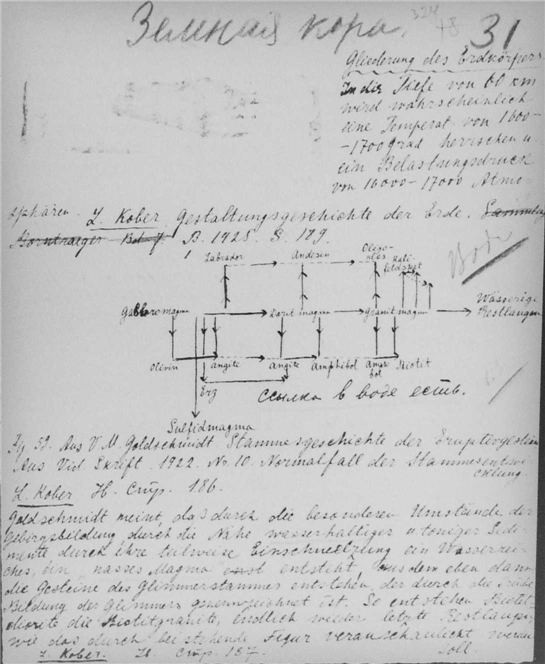 Земная кора.
31
Gliederung des Erdkörpers
In die Tiefe von 60 km
wird wahrscheinlich
eine Temperat von 1600-
-1700 grad herrschen u.
ein Belastungsdruck
von 16000-17000 Atmo-
sphären. L. Kober Gestaltungsgeschichte der Erde.
Borntraeger B. 1925. S. 189.
Labrador Andesin Oligo-
Вода
Gabbromagma Granitmagma Wässerig.
Restlaugen
Olivin Augite Augite Amphibol Biotit
Erz
ссылка в воде есть.
Sulfidmagma
Fg 59. Aus V. M. Goldschmidt Stammesgeschichte der Eruptivgestein
Aus Vid. Skrift. 1922. Nr. 10. Normalfall der Stammesentwi
cklung.
L. Kober Ib. Стр. 186.
Goldschmidt meint, das durch die besonderen Umstände der
Gebirgsbildung, durch die Nähe wasserhaltiger u toniger Sedi-
mente durch ihre teilweise Einschmelzung ein Wasserrei-
ches, ein nasses Magma entsteht, aus dem eben dann
die Gesteine des Glimmerstammes entstehen, der durch die frühe
Bildung des Glimmers gekennzeichnet ist. So entstehen Biotit-
diorite die Biotitgranite, endlich wieder letzte Restlaugen
wie das durch bei stehende Figur veranschaulicht werden
L. Kober. Ib. Стр. 187. soll.